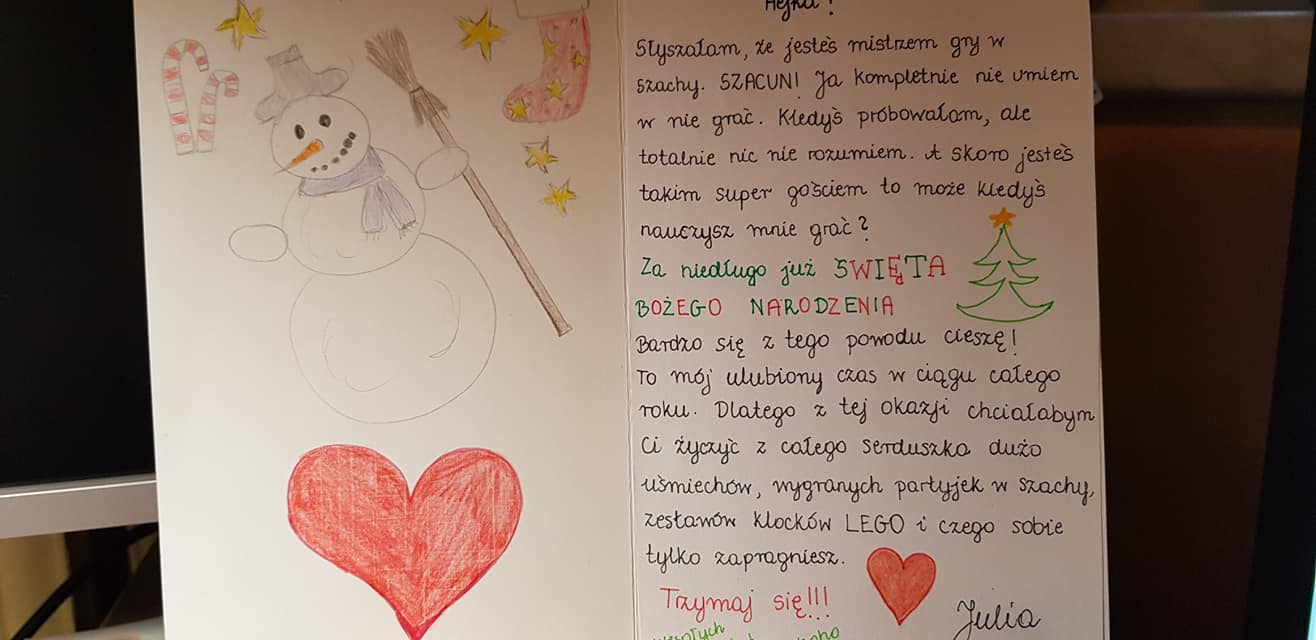 Hejka!
Słyszałam, że jesteś mistrzem gry w
szachy. SZACUN! Ja kompletnie nie umiem
w nie grać. Kiedyś próbowałam, ale
totalnie nic nie rozumiem. A skoro jesteś
takim super gościem to może kiedyś
nauczysz mnie grać?
Za niedługo już ŚWIĘTA
BOŻEGO NARODZENIA
Bardzo się z tego powodu cieszę!
To mój ulubiony czas w ciągu całego
roku. Dlatego z tej okazji chciałabym
Ci życzyć z całego serduszka dużo
uśmiechów, wygranych partyjek w szachy,
zestawów klocków LEGO i czego sobie
tylko zapragniesz.
Trzymaj się!!!
Julia
Wesołych